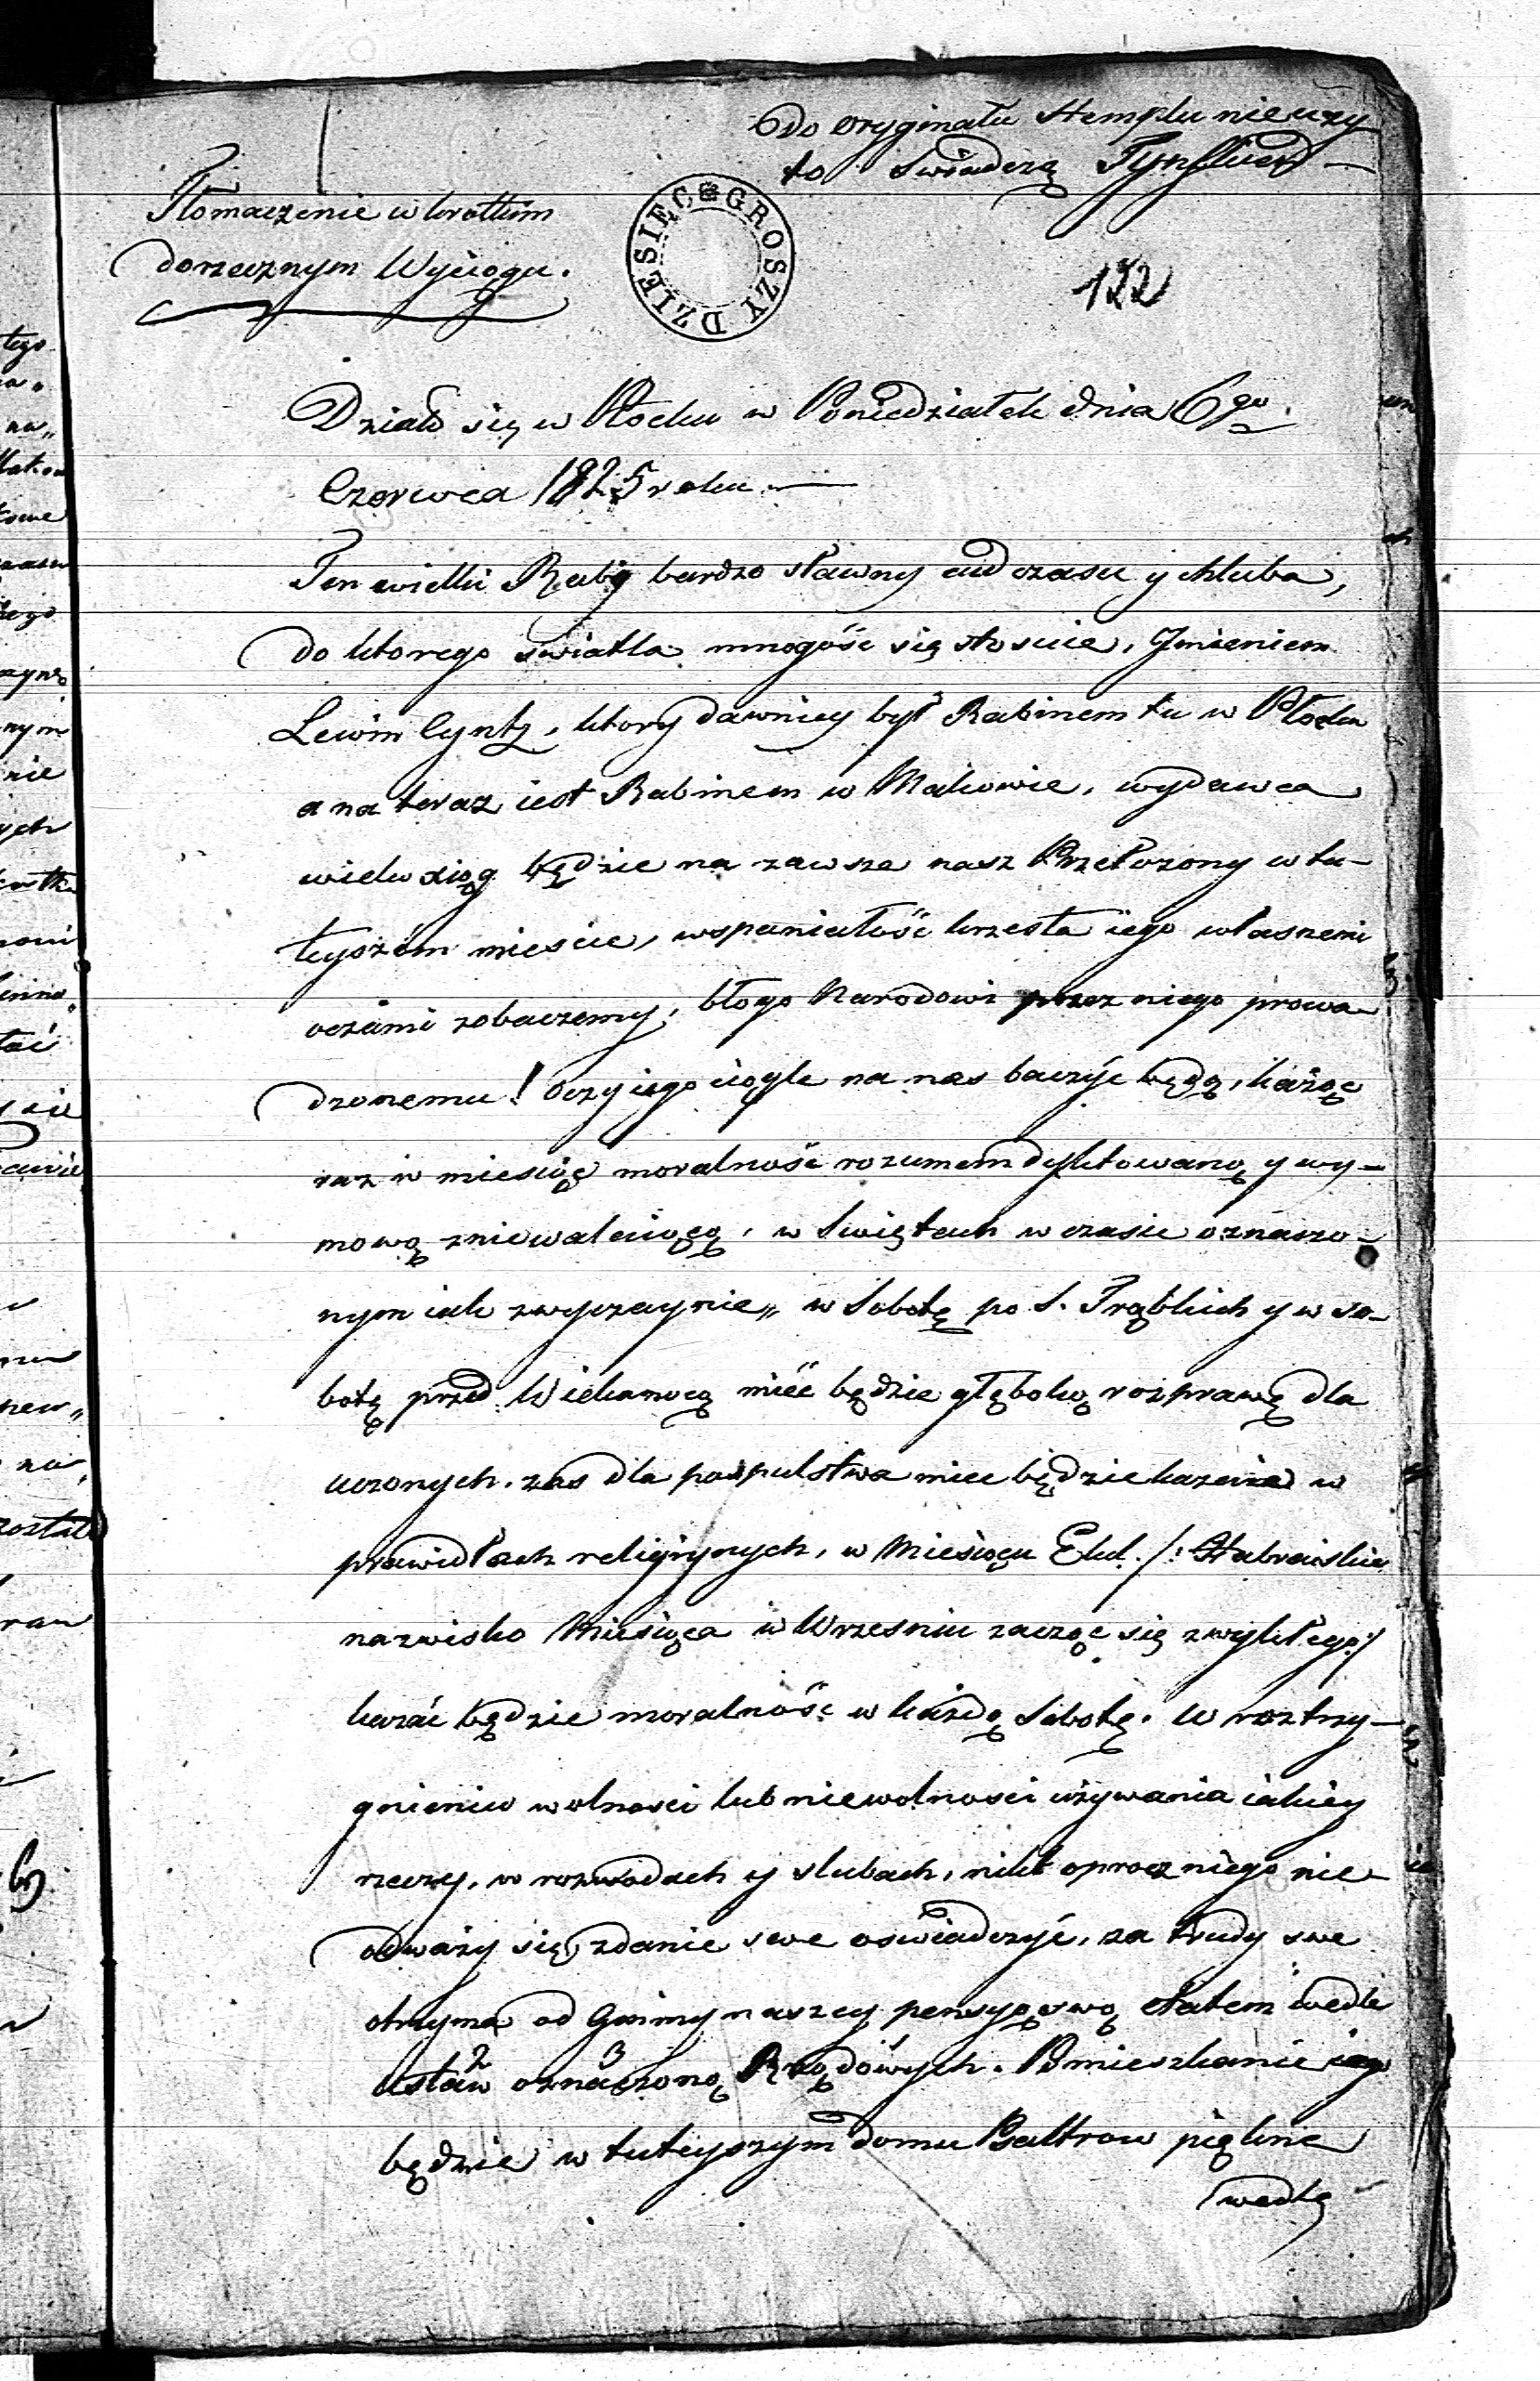 do oryginału Stemplu nieuży
to świadczą
Tłomaczenie w krotkim
dorzecznym Wyciągu.
DZIESIĘC GROSZY
122
Działo się w Płocku w Poniedziałek dnia 6go
Czerwca 1825 roku.—
Ten wielki Raby bardzo sławny cud czasu y chluba,
do ktorego światła mnogość się stosuie, Jmieniem
Lewin Cyntz, ktory dawniey był Rabinem tu w Płocku
a na teraz iest Rabinem w Makowie, wydawca
wielu xiąg będzie na zawsze nasz Przełozony w tu-
teyszem miescie, wspaniałość krzesła iego własnemi
oczami zobaczemy, błogo Narodowi przez niego prowa-
dzonemu! Oczy iego ciągle na nas baczyć będą, każąc
raz w miesiąc moralność rozumem dyktowaną y wy-
mową zniewalaiącą, w Swiętach w czasie oznaczo-
nym iak zwyczaynie„ w Sobotę po S. Trąbkich y w so-
botę przed Wielkanocą mieć będzie głęboką rozprawę dla
uczonych. zas dla pospulstwa miec będzie kazania w
prawidłach religiynych, w Miesiącu Elul /: Habraiskie
nazwisko Miesiąca w Wrzesniu zacząć się zwykłego:/
kazać będzie moralność w każdą Sobotę. W roztrzy-
gnieniu wolnosci lub niewolnosci używania iakiey
rzeczy, w rozwodach y slubach, nikt oprocz niego nie
odważy się zdanie swe oświadczyć, za trudy swe
otrzyma od Gminy naszey pensyą swą etatem wedle
2 3
Ustaw oznaczoną Rządowych. Pomieszkanie iego
będzie w tuteyszym domu Psałtrow pięknie
wedłę